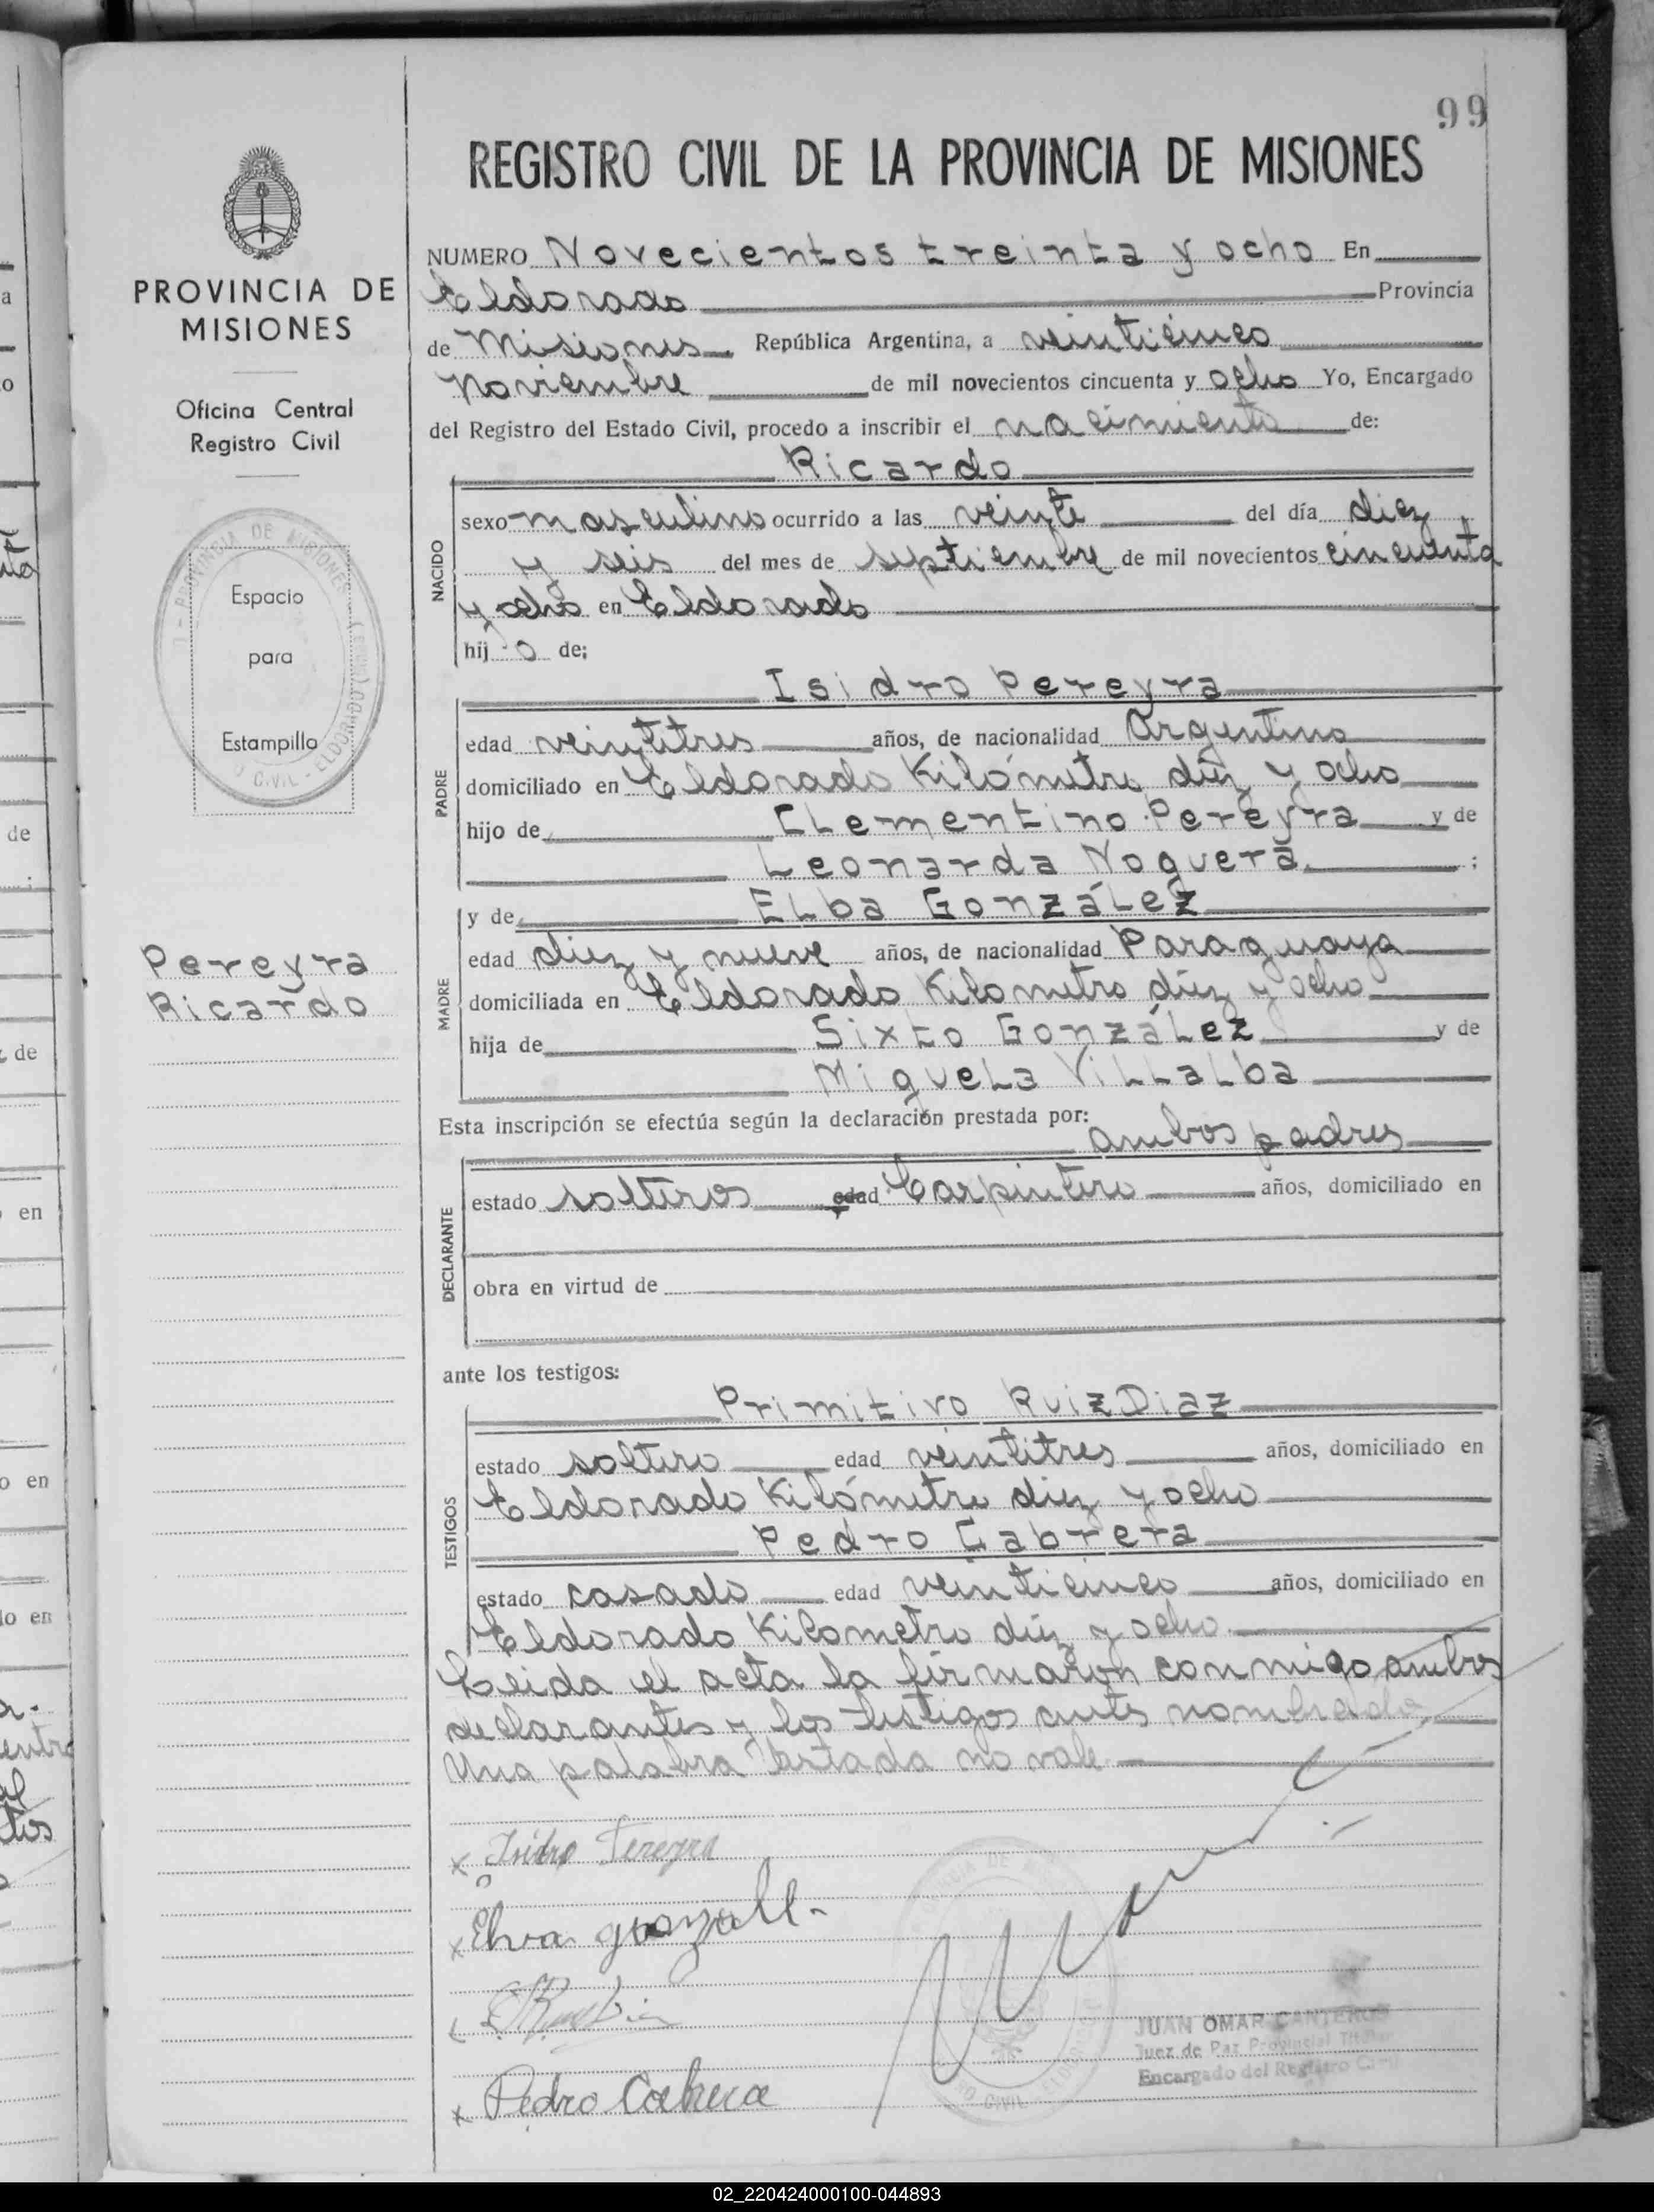 99
REGISTRO CIVIL DE LA PROVINCIA DE MISIONES
PROVINCIA DE
MISIONES
Oficina Central
Registro Civil
Espacio
para
Estampilla
Pereyra
Ricardo
NUMERO Novecientos treinta y ocho En
Eldorado Provincia
de Misiones República Argentina, a veinticinco
Noviembre de mil novecientos cincuenta y ocho Yo, Encargado
del Registro del Estado Civil, procedo a inscribir el nacimiento de:
Ricardo
NACIDO
sexo masculino ocurrido a las veinte del día diez
y seis del mes de septiembre de mil novecientos cincuenta
y ocho en Eldorado
hij o de;
Isidro Pereyra
PADRE
edad veintitres años, de nacionalidad Argentino
domiciliado en Eldorado Kilómetro diez y ocho
hijo de Clementino Pereyra y de
Leonarda Noguera ;
MADRE
y de Elba González
edad diez y nueve años, de nacionalidad Paraguaya
domiciliada en Eldorado Kilometro diez y ocho
hija de Sixto González y de
Miguela Villalba
Esta inscripción se efectúa según la declaración prestada por:
ambos padres
DECLARANTE
estado solteros edad Carpintero años, domiciliado en
obra en virtud de
ante los testigos:
Primitivo Ruiz Diaz
TESTIGOS
estado soltero edad veintitres años, domiciliado en
Eldorado Kilómetro diez y ocho
Pedro Cabrera
estado casado edad veinticinco años, domiciliado en
Eldorado Kilometro diez y ocho
Leida el acta la firmaron conmigo ambos
declarantes y los testigos antes nombrados
Una palabra testada no vale
x Isidro Pereyra
x Elva
x Pedro Cabrera
JUAN OMAR CANTEROS
Juez de Paz Provincial Titular
Encargado del Registro Civil
02_220424000100-044893